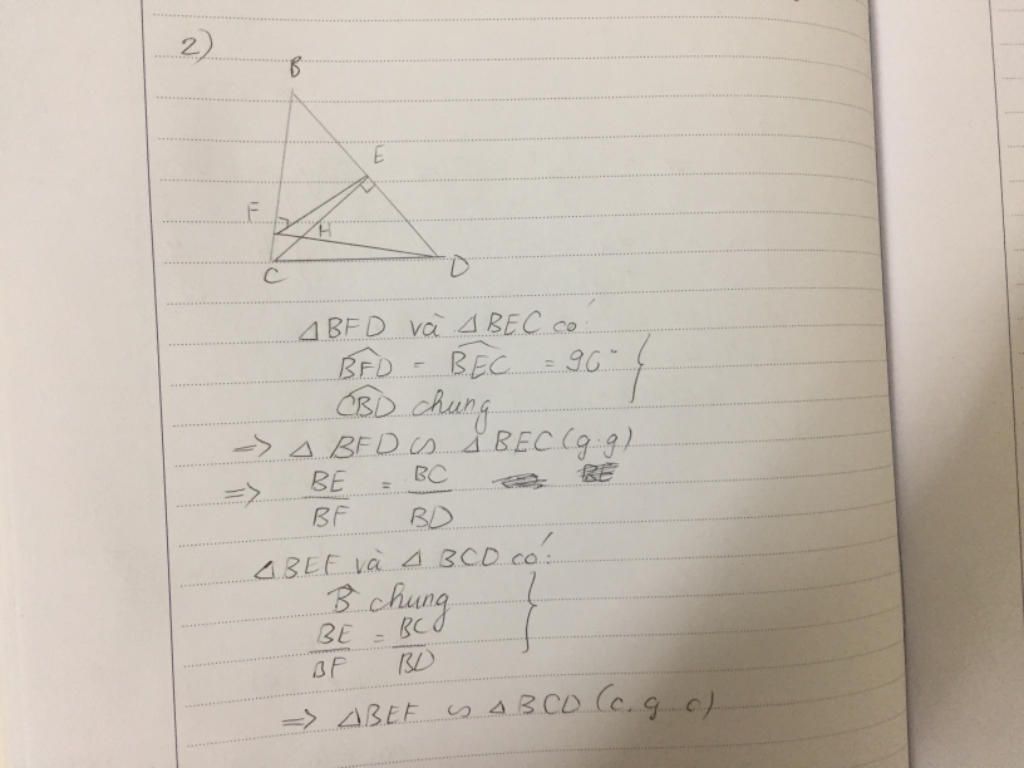 2)
B
E
F
H
C
D
△BFD và △BEC có:
BFD = BEC = 90° }
CBD chung
=> △ BFD ∽ △BEC (g.g)
=> BE/BF = BC/BD
△BEF và △BCD có:
B chung }
BE/BF = BC/BD
=> △BEF ∽ △BCD (c.g.c)